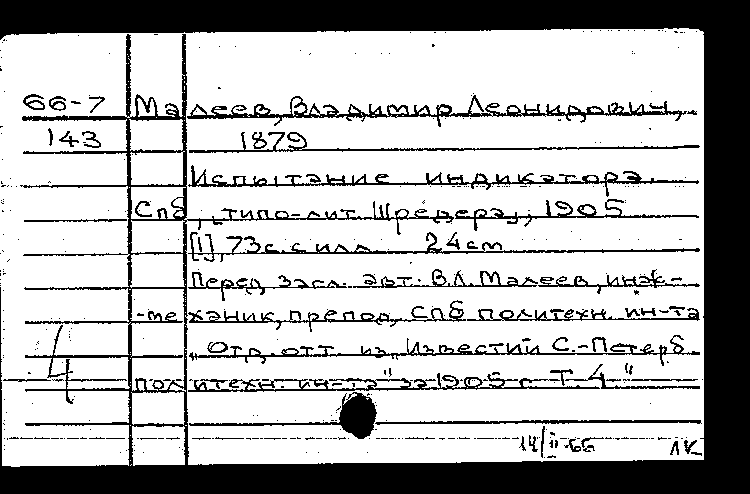 66-7 Малеев, Владимир Леонидович,
143 1879
Испытание индикатора.
Спб, "типо-лит. Шредера", 1905
[1], 73 с. с илл. 24 см
Перед засл. авт.: В.Л. Малеев, инж.-
-механик, препод. Спб политехн. ин-та
"Отд. отт. из "Известий С.-Петерб.
политехн. ин-та" за 1905 г. Т. 4"
4
14/II-66 ЛК